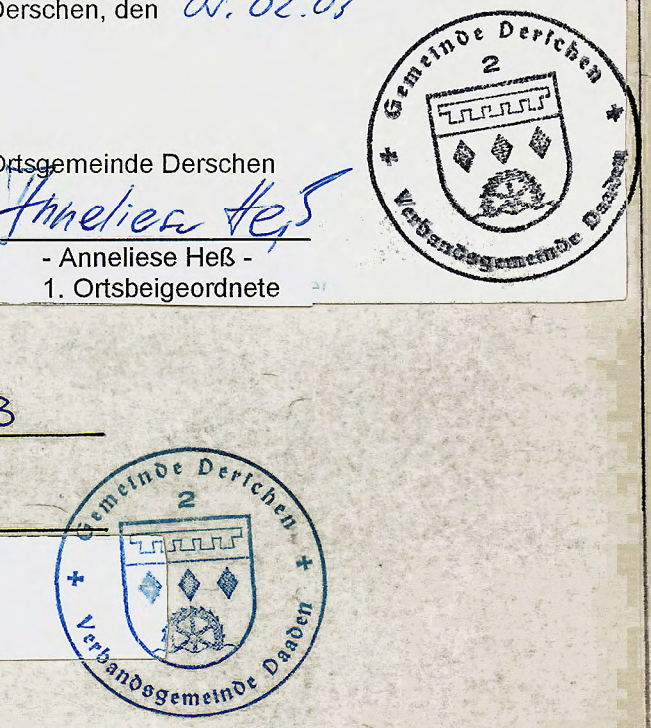 Derschen, den 04.02.03
Gemeinde Derschen
2
Verbandsgemeinde Daaden
Ortsgemeinde Derschen
Anneliese Heß
- Anneliese Heß -
1. Ortsbeigeordnete
Gemeinde Derschen
2
Verbandsgemeinde Daaden